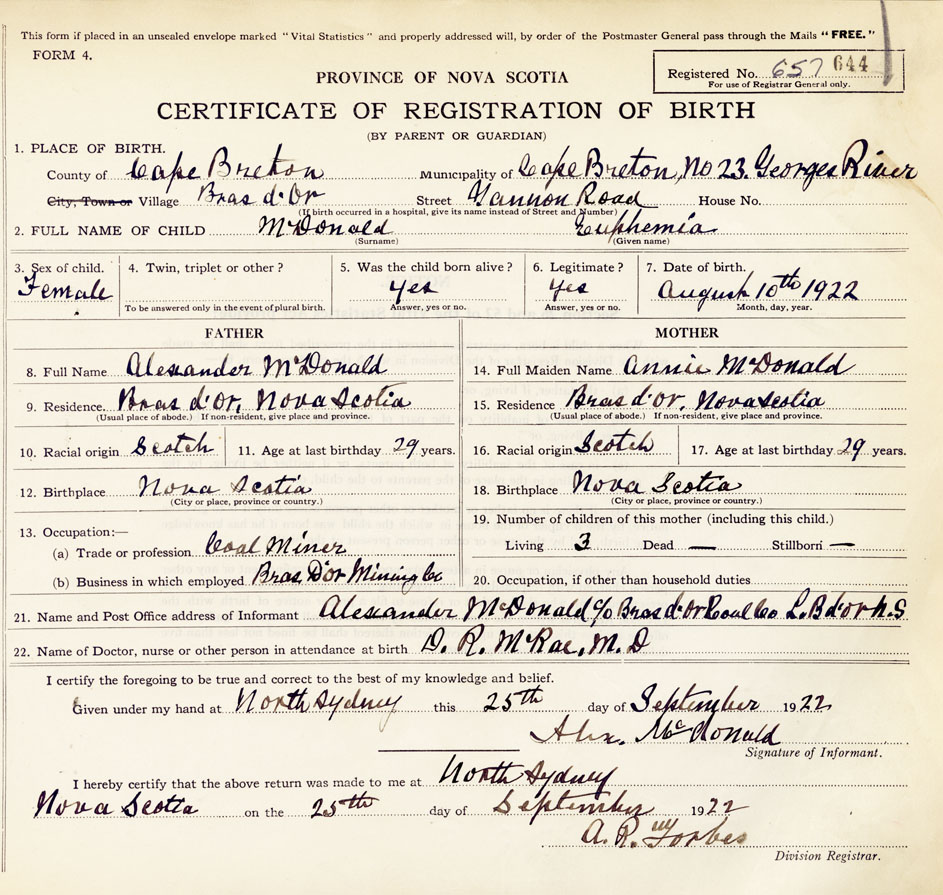 This form if placed in an unsealed envelope marked "Vital Statistics" and properly addressed will, by order of the Postmaster General pass through the Mails "FREE."
FORM 4.
Registered No. 657 644
For use of Registrar General only.
PROVINCE OF NOVA SCOTIA
CERTIFICATE OF REGISTRATION OF BIRTH
(BY PARENT OR GUARDIAN)
1. PLACE OF BIRTH.
County of Cape Breton Municipality of Cape Breton, No 23. Georges River
City, Town or Village Bras d'Or Street Gannon Road House No.
(If birth occurred in a hospital, give its name instead of Street and Number)
2. FULL NAME OF CHILD McDonald Euphemia
(Surname) (Given name)
3. Sex of child. 4. Twin, triplet or other? 5. Was the child born alive? 6. Legitimate? 7. Date of birth.
Female yes yes August 10th 1922
To be answered only in the event of plural birth. Answer, yes or no. Answer, yes or no. Month, day, year.
FATHER MOTHER
8. Full Name Alexander McDonald 14. Full Maiden Name Annie McDonald
9. Residence Bras d'Or, Nova Scotia 15. Residence Bras d'Or, Nova Scotia
(Usual place of abode.) If non-resident, give place and province. (Usual place of abode.) If non-resident, give place and province.
10. Racial origin Scotch 11. Age at last birthday 29 years. 16. Racial origin Scotch 17. Age at last birthday 29 years.
12. Birthplace Nova Scotia 18. Birthplace Nova Scotia
(City or place, province or country.) (City or place, province or country.)
13. Occupation:— 19. Number of children of this mother (including this child.)
(a) Trade or profession Coal Miner Living 3 Dead — Stillborn —
(b) Business in which employed Bras D'or Mining Co 20. Occupation, if other than household duties
21. Name and Post Office address of Informant Alexander McDonald c/o Bras d'Or Coal Co L. B d'or N.S
22. Name of Doctor, nurse or other person in attendance at birth D. R. McRae, M. D
I certify the foregoing to be true and correct to the best of my knowledge and belief.
Given under my hand at North Sydney this 25th day of September 1922
Alex. McDonald
Signature of Informant.
I hereby certify that the above return was made to me at North Sydney
Nova Scotia on the 25th day of September 1922
A. R. Forbes
Division Registrar.